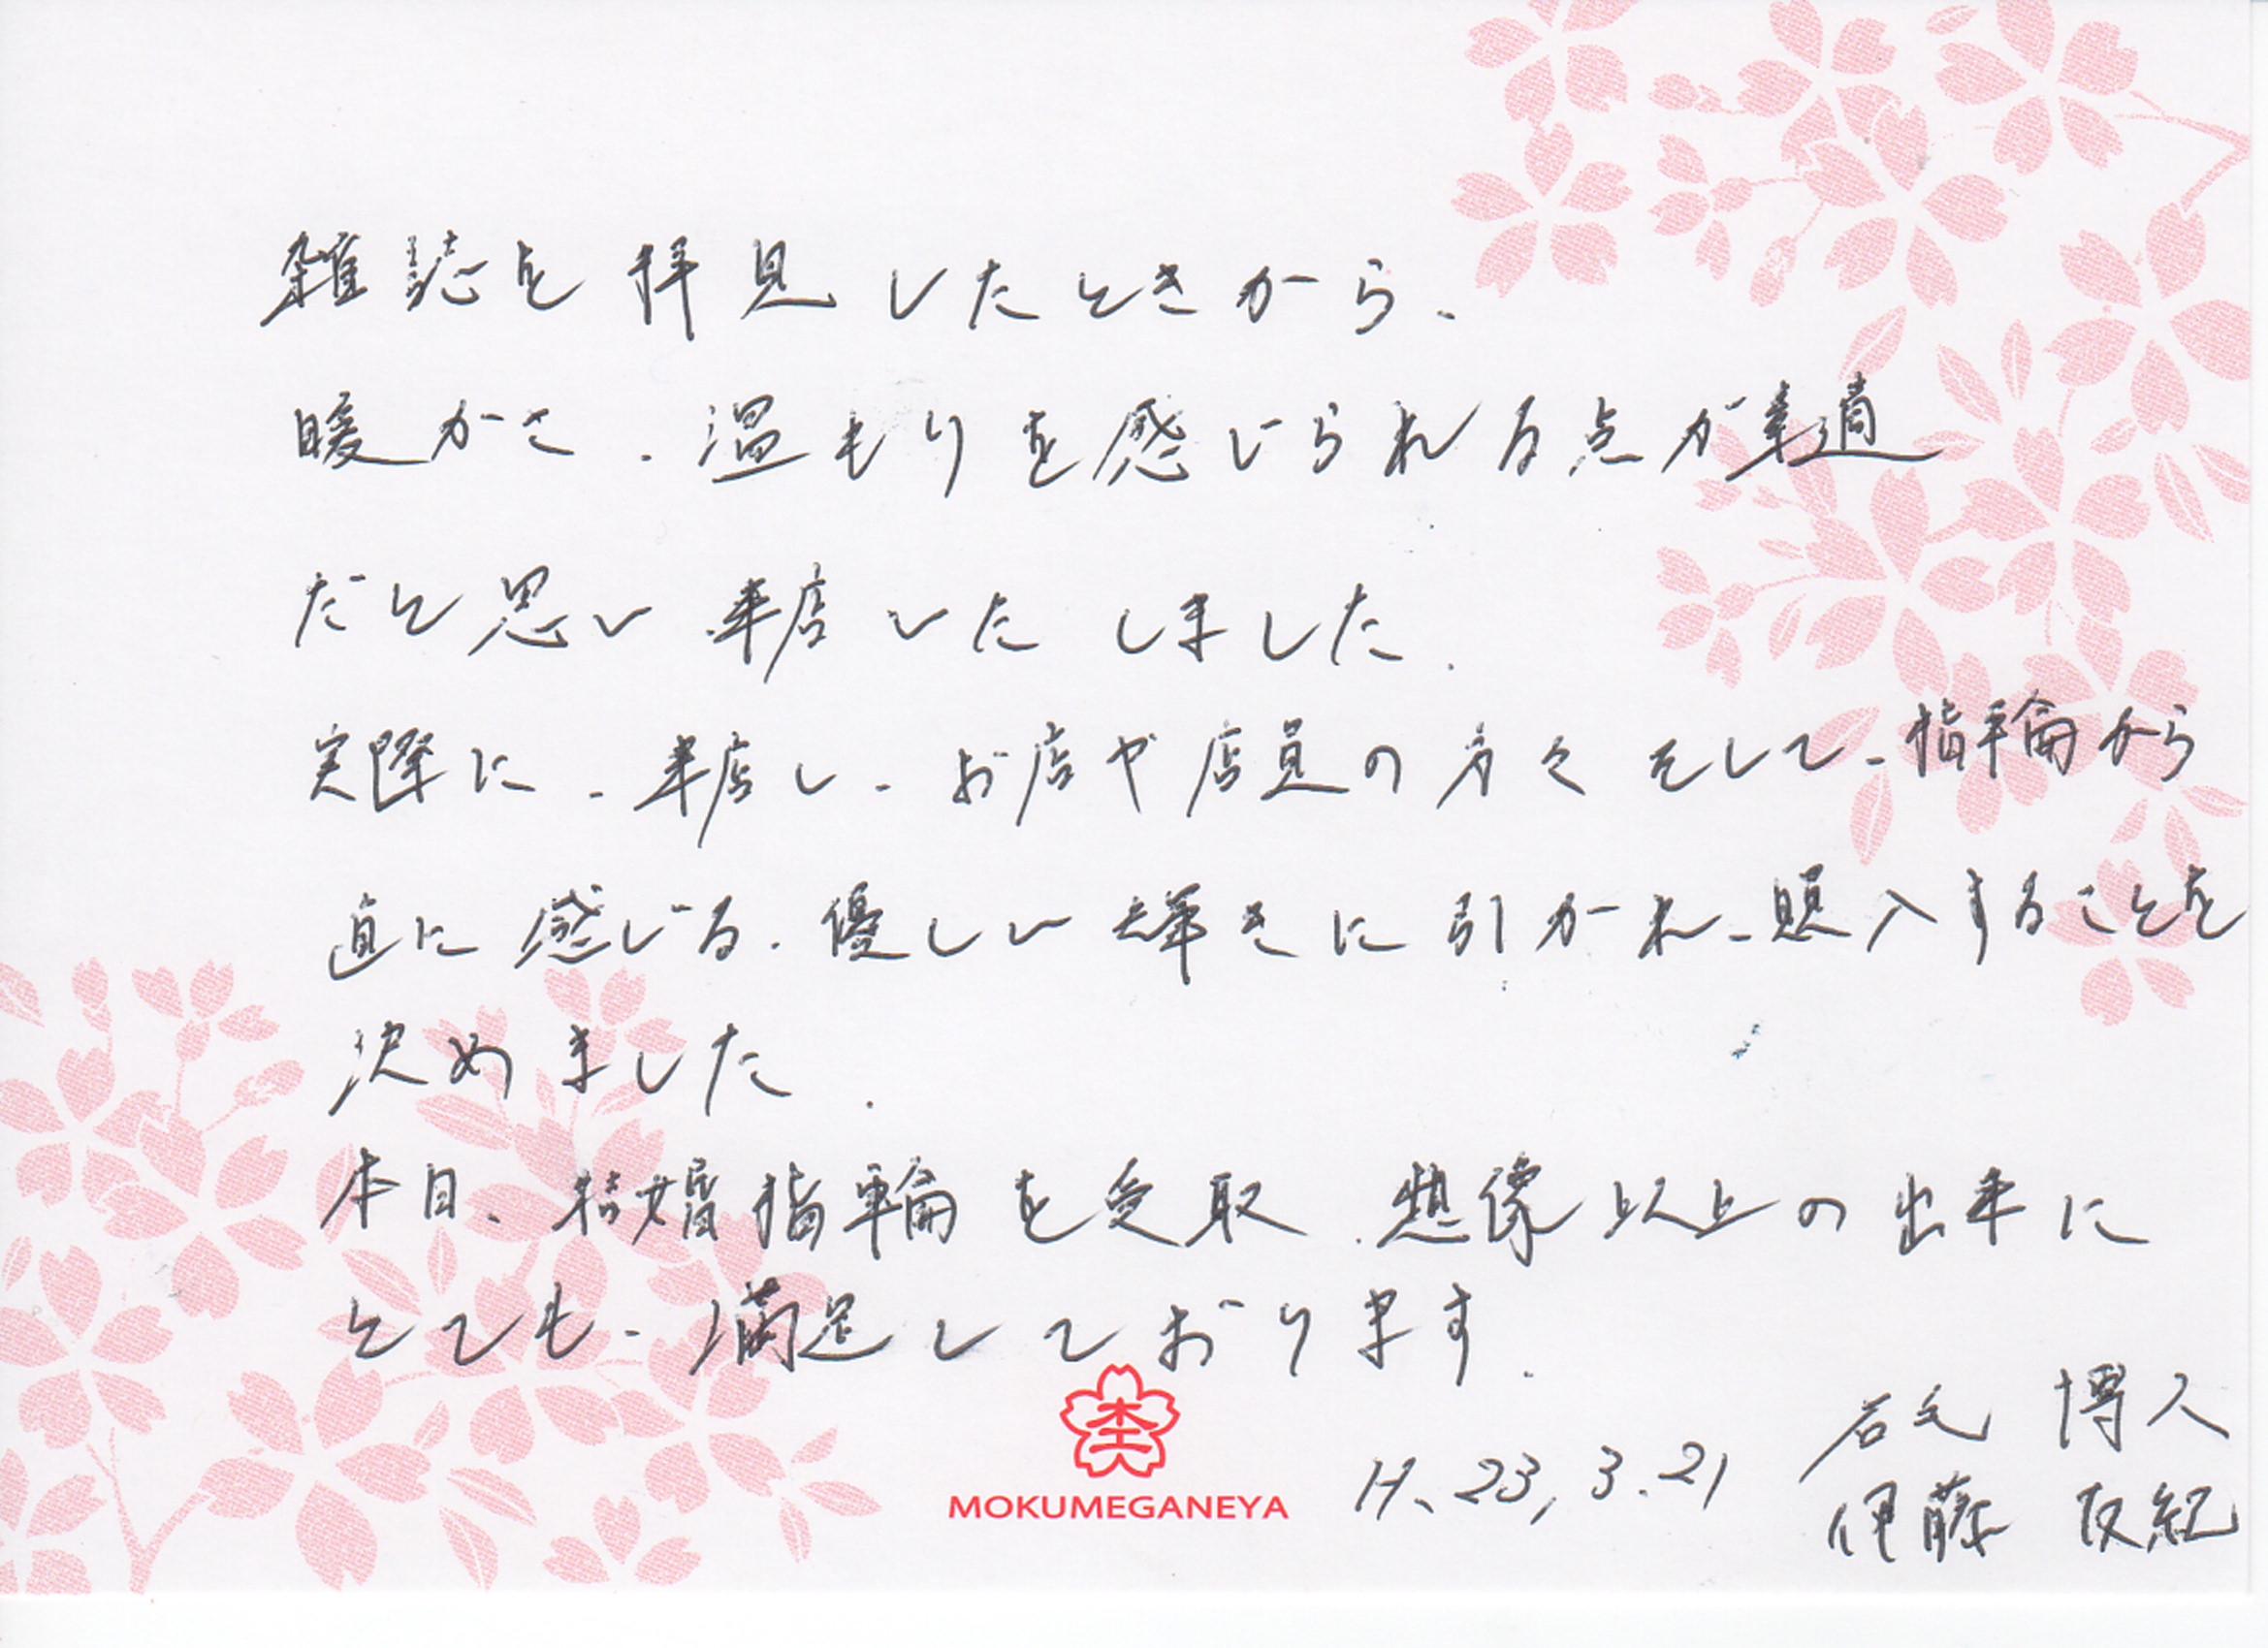 雑誌を拝見したときから、
暖かさ、温もりを感じられる点が素適
だと思い来店いたしました。
実際に、来店し、お店や店員の方々そして、指輪から
直に感じる、優しい輝きに引かれ、購入することを
決めました。
本日、結婚指輪を受取、想像以上の出来に
とても、満足しております。
博人
H、23,3.21
伊藤 友紀
MOKUMEGANEYA